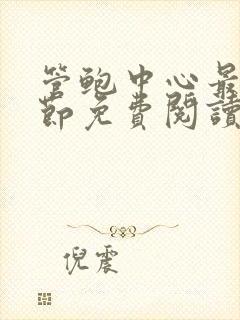 管鲍中心最
節免費閱讀
倪震